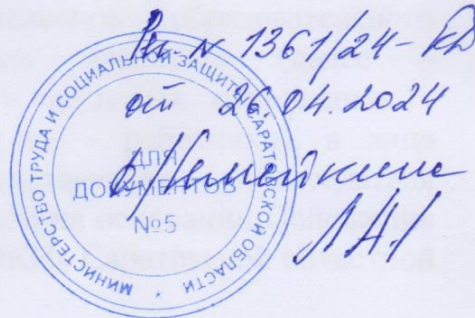 Рег. № 1361/24-КД
от 26.04.2024
МИНИСТЕРСТВО ТРУДА И СОЦИАЛЬНОЙ ЗАЩИТЫ САРАТОВСКОЙ ОБЛАСТИ
ДЛЯ
ДОКУМЕНТОВ
№5